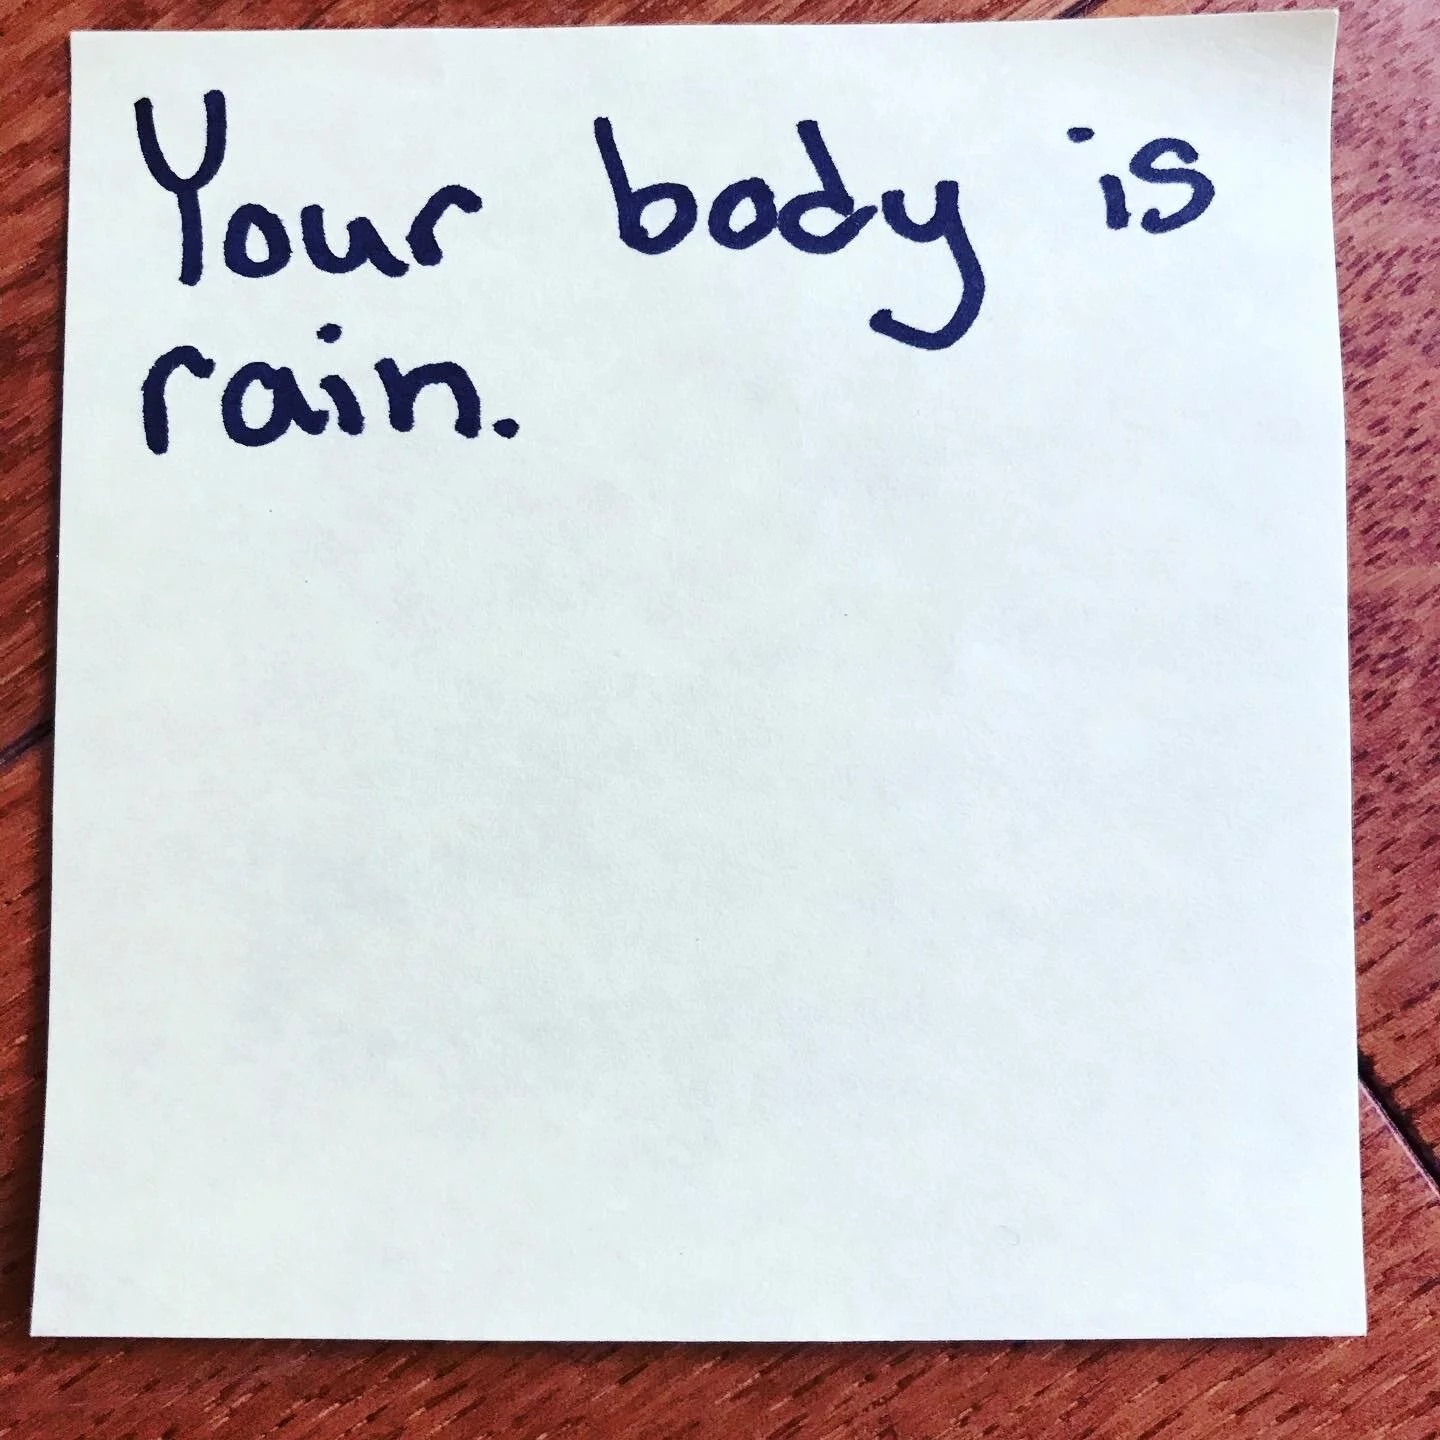 Your body is
rain.